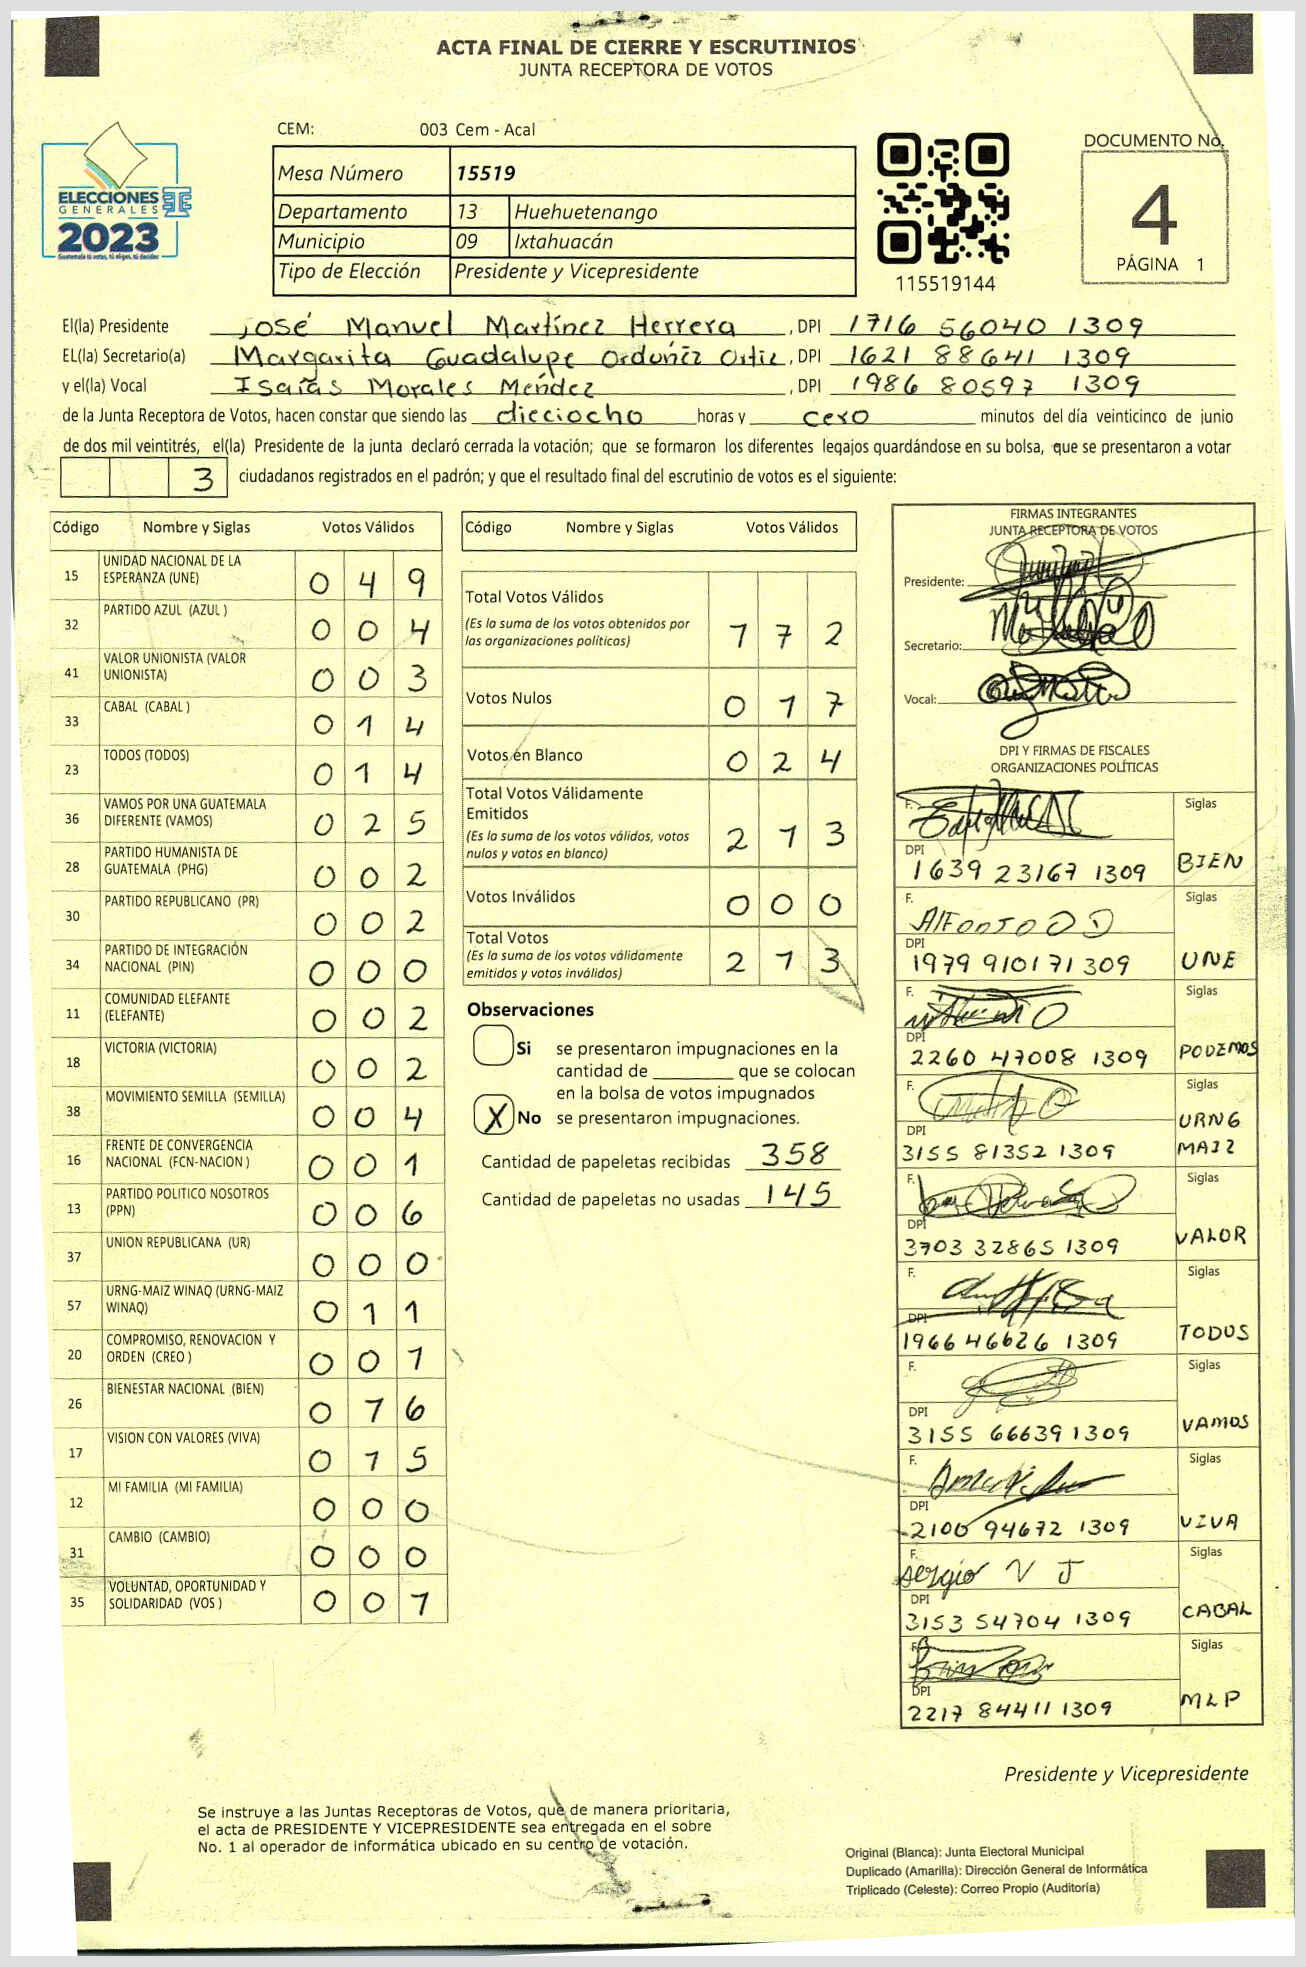 ACTA FINAL DE CIERRE Y ESCRUTINIOS
JUNTA RECEPTORA DE VOTOS
CEM: 003 Cem - Acal
ELECCIONES
GENERALES
2023
Guatemala tú votas, tú eliges, tú decides
Mesa Número 15519
Departamento 13 Huehuetenango
Municipio 09 Ixtahuacán
Tipo de Elección Presidente y Vicepresidente
115519144
DOCUMENTO No.
4
PÁGINA 1
El(la) Presidente José Manuel Martínez Herrera, DPI 1716 56040 1309
EL(la) Secretario(a) Margarita Guadalupe Ordóñez Ortiz, DPI 1621 88641 1309
y el(la) Vocal Isaías Morales Méndez, DPI 1986 80597 1309
de la Junta Receptora de Votos, hacen constar que siendo las dieciocho horas y cero minutos del día veinticinco de junio
de dos mil veintitrés, el(la) Presidente de la junta declaró cerrada la votación; que se formaron los diferentes legajos guardándose en su bolsa, que se presentaron a votar
3 ciudadanos registrados en el padrón; y que el resultado final del escrutinio de votos es el siguiente:
Código Nombre y Siglas Votos Válidos
15 UNIDAD NACIONAL DE LA
ESPERANZA (UNE) 0 4 9
32 PARTIDO AZUL (AZUL ) 0 0 4
41 VALOR UNIONISTA (VALOR
UNIONISTA) 0 0 3
33 CABAL (CABAL ) 0 1 4
23 TODOS (TODOS) 0 1 4
36 VAMOS POR UNA GUATEMALA
DIFERENTE (VAMOS) 0 2 5
28 PARTIDO HUMANISTA DE
GUATEMALA (PHG) 0 0 2
30 PARTIDO REPUBLICANO (PR) 0 0 2
34 PARTIDO DE INTEGRACIÓN
NACIONAL (PIN) 0 0 0
11 COMUNIDAD ELEFANTE
(ELEFANTE) 0 0 2
18 VICTORIA (VICTORIA) 0 0 2
38 MOVIMIENTO SEMILLA (SEMILLA) 0 0 4
16 FRENTE DE CONVERGENCIA
NACIONAL (FCN-NACION ) 0 0 1
13 PARTIDO POLITICO NOSOTROS
(PPN) 0 0 6
37 UNION REPUBLICANA (UR) 0 0 0
57 URNG-MAIZ WINAQ (URNG-MAIZ
WINAQ) 0 1 1
20 COMPROMISO, RENOVACION Y
ORDEN (CREO ) 0 0 1
26 BIENESTAR NACIONAL (BIEN) 0 1 6
17 VISION CON VALORES (VIVA) 0 1 5
12 MI FAMILIA (MI FAMILIA) 0 0 0
31 CAMBIO (CAMBIO) 0 0 0
35 VOLUNTAD, OPORTUNIDAD Y
SOLIDARIDAD (VOS ) 0 0 1
Código Nombre y Siglas Votos Válidos
Total Votos Válidos
(Es la suma de los votos obtenidos por
las organizaciones políticas) 1 7 2
Votos Nulos 0 1 7
Votos en Blanco 0 2 4
Total Votos Válidamente
Emitidos
(Es la suma de los votos válidos, votos
nulos y votos en blanco) 2 1 3
Votos Inválidos 0 0 0
Total Votos
(Es la suma de los votos válidamente
emitidos y votos inválidos) 2 1 3
Observaciones
Si se presentaron impugnaciones en la
cantidad de ________ que se colocan
en la bolsa de votos impugnados
X No se presentaron impugnaciones.
Cantidad de papeletas recibidas 358
Cantidad de papeletas no usadas 145
FIRMAS INTEGRANTES
JUNTA RECEPTORA DE VOTOS
Presidente:
Secretario:
Vocal:
DPI Y FIRMAS DE FISCALES
ORGANIZACIONES POLÍTICAS
F. Siglas
DPI
1639 23167 1309 BIEN
F. Alfonso O D Siglas
DPI
1979 91017 1309 UNE
F. Siglas
DPI
2260 47008 1309 PODEMOS
F. Siglas
DPI
3155 81352 1309 URNG
MAIZ
F. Siglas
DPI
3703 32865 1309 VALOR
F. Siglas
DPI
1966 46626 1309 TODOS
F. Siglas
DPI
3155 66639 1309 VAMOS
F. Siglas
DPI
2100 94672 1309 VIVA
F. Sergio V J Siglas
DPI
3153 54704 1309 CABAL
F. Siglas
DPI
2217 84411 1309 MLP
Presidente y Vicepresidente
Se instruye a las Juntas Receptoras de Votos, que de manera prioritaria,
el acta de PRESIDENTE Y VICEPRESIDENTE sea entregada en el sobre
No. 1 al operador de informática ubicado en su centro de votación.
Original (Blanca): Junta Electoral Municipal
Duplicado (Amarilla): Dirección General de Informática
Triplicado (Celeste): Correo Propio (Auditoría)